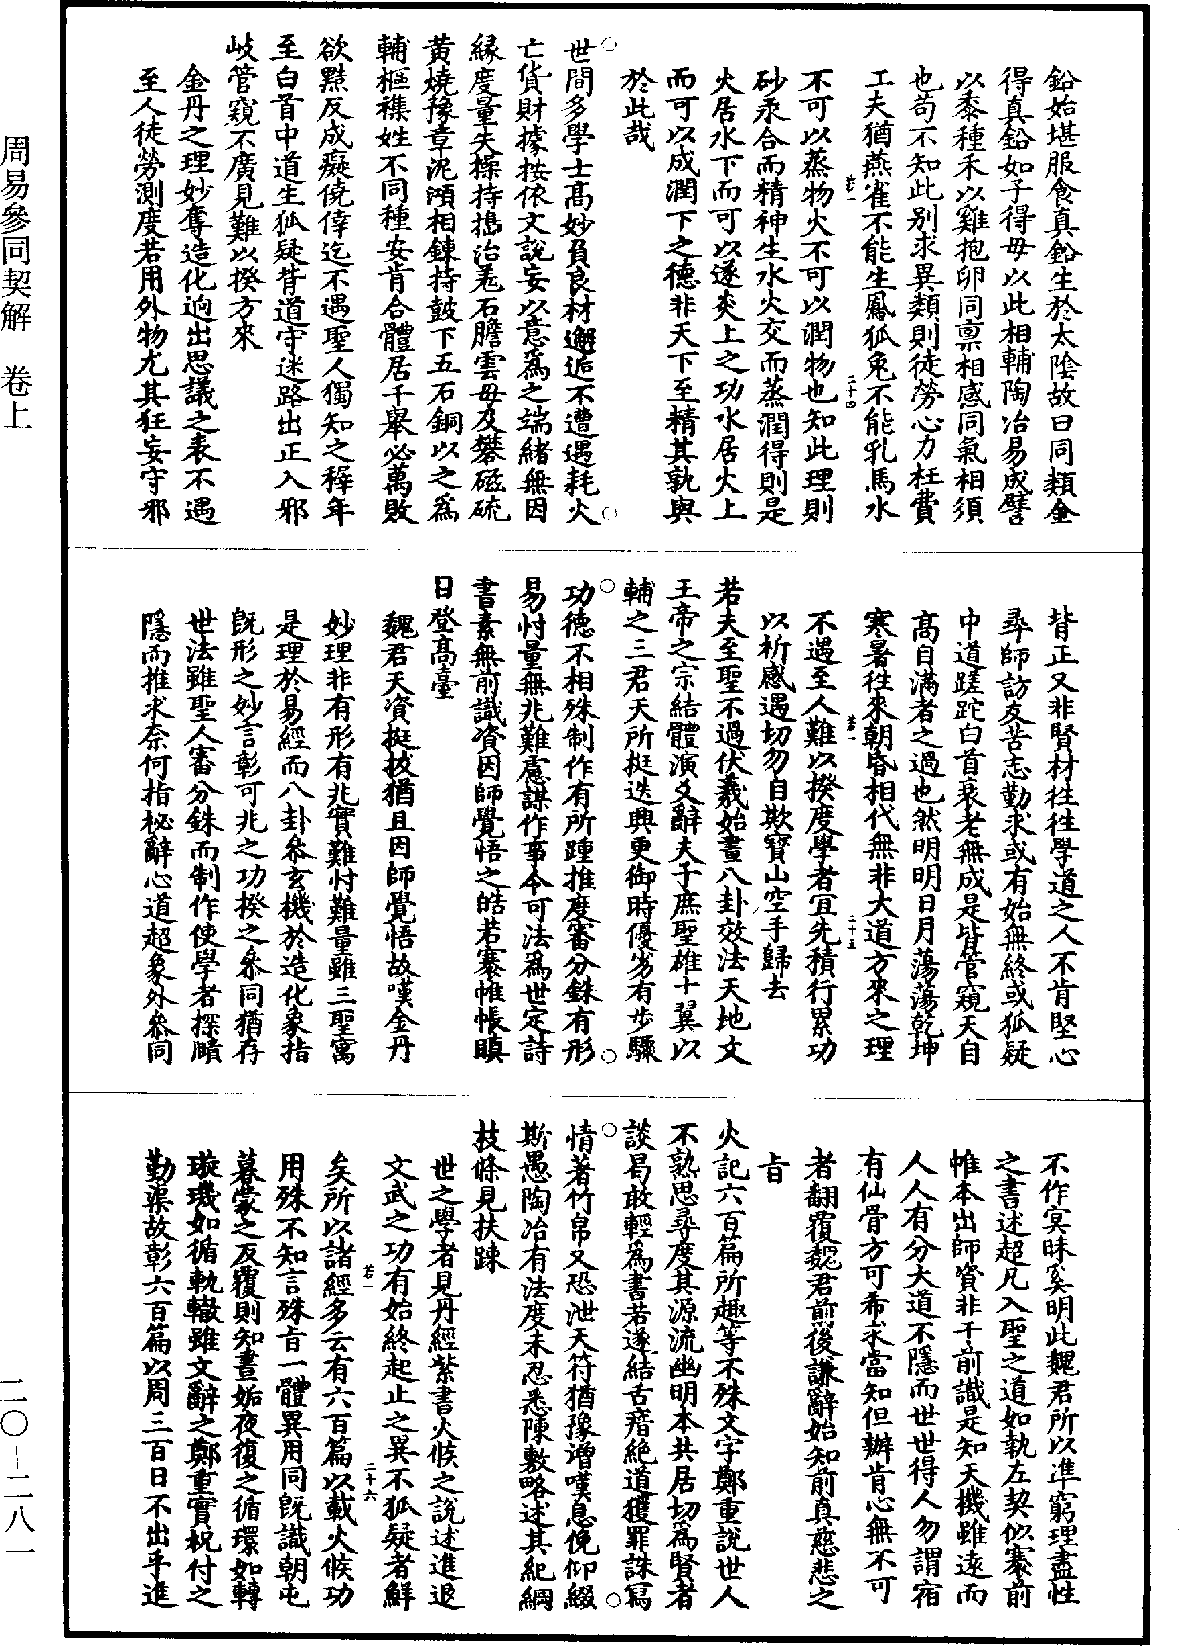 周易參同契解　卷上
二〇－二八一
鉛始堪服食真鉛生於太陰故曰同類金
得真鉛如子得母以此相輔陶冶易成譬
以黍種禾以雞抱卵同稟相感同氣相須
也苟不知此別求異類則徒勞心力枉費
工夫猶燕雀不能生鳳狐兔不能乳馬水
若一　二十四
不可以蒸物火不可以潤物也知此理則
砂汞合而精神生水火交而蒸潤得則是
火居水下而可以遂炎上之功水居火上
而可以成潤下之德非天下至精其孰與
於此哉
世間多學士高妙負良材邂逅不遭遇耗火
亡貨財據按依文說妄以意為之端緒無因
緣度量失操持擣治羗石膽雲母及礬磁硫
黃燒豫章泥澒相鍊持鼓下五石銅以之為
輔樞襍姓不同種安肯合體居千舉必萬敗
欲黠反成癡僥倖迄不遇聖人獨知之穉年
至白首中道生狐疑背道守迷路出正入邪
岐管窺不廣見難以揆方來
金丹之理妙奪造化逈出思議之表不遇
至人徒勞測度若用外物尤其狂妄守邪
背正又非賢材往往學道之人不肯堅心
尋師訪友苦志勤求或有始無終或狐疑
中道蹉跎白首衰老無成是皆管窺天自
高自滿者之過也然明明日月蕩蕩乾坤
寒暑往來朝昏相代無非大道方來之理
若一　二十五
不遇至人難以揆度學者宜先積行累功
以祈感遇切勿自欺寶山空手歸去
若夫至聖不過伏羲始畫八卦效法天地文
王帝之宗結體演爻辭夫子庶聖雄十翼以
輔之三君天所挺迭興更御時優劣有步驟
功德不相殊制作有所踵推度審分銖有形
易忖量無兆難慮謀作事令可法為世定詩
書素無前識資因師覺悟之皓若褰帷帳瞋
目登高臺
魏君天資挺拔猶且因師覺悟故嘆金丹
妙理非有形有兆實難忖難量雖三聖寓
是理於易經而八卦參玄機於造化象指
既形之妙言彰可兆之功揆之參同猶存
世法雖聖人審分銖而制作使學者探賾
隱而推求奈何指祕辭心道超象外參同
不作冥昧奚明此魏君所以準窮理盡性
之書述超凡入聖之道如執左契似褰前
帷本出師資非干前識是知天機雖遠而
人人有分大道不隱而世世得人勿謂宿
有仙骨方可希求當知但辦肯心無不可
者翻覆魏君前後謙辭始知前真慈悲之
旨
火記六百篇所趣等不殊文字鄭重說世人
不熟思尋度其源流幽明本共居切為賢者
談曷敢輕為書若遂結舌瘖絕道獲罪誅寫
情著竹帛又恐泄天符猶豫增嘆息俛仰綴
斯愚陶冶有法度未忍悉陳敷略述其紀綱
枝條見扶踈
世之學者見丹經紫書火候之說述進退
文武之功有始終起止之異不狐疑者鮮
若一　二十六
矣所以諸經多云有六百篇以載火候功
用殊不知言殊旨一體異用同既識朝屯
暮蒙之反覆則知晝姤夜復之循環如轉
璇璣如循軌轍雖文辭之鄭重實祝付之
勤渠故彰六百篇以周三百日不出乎進